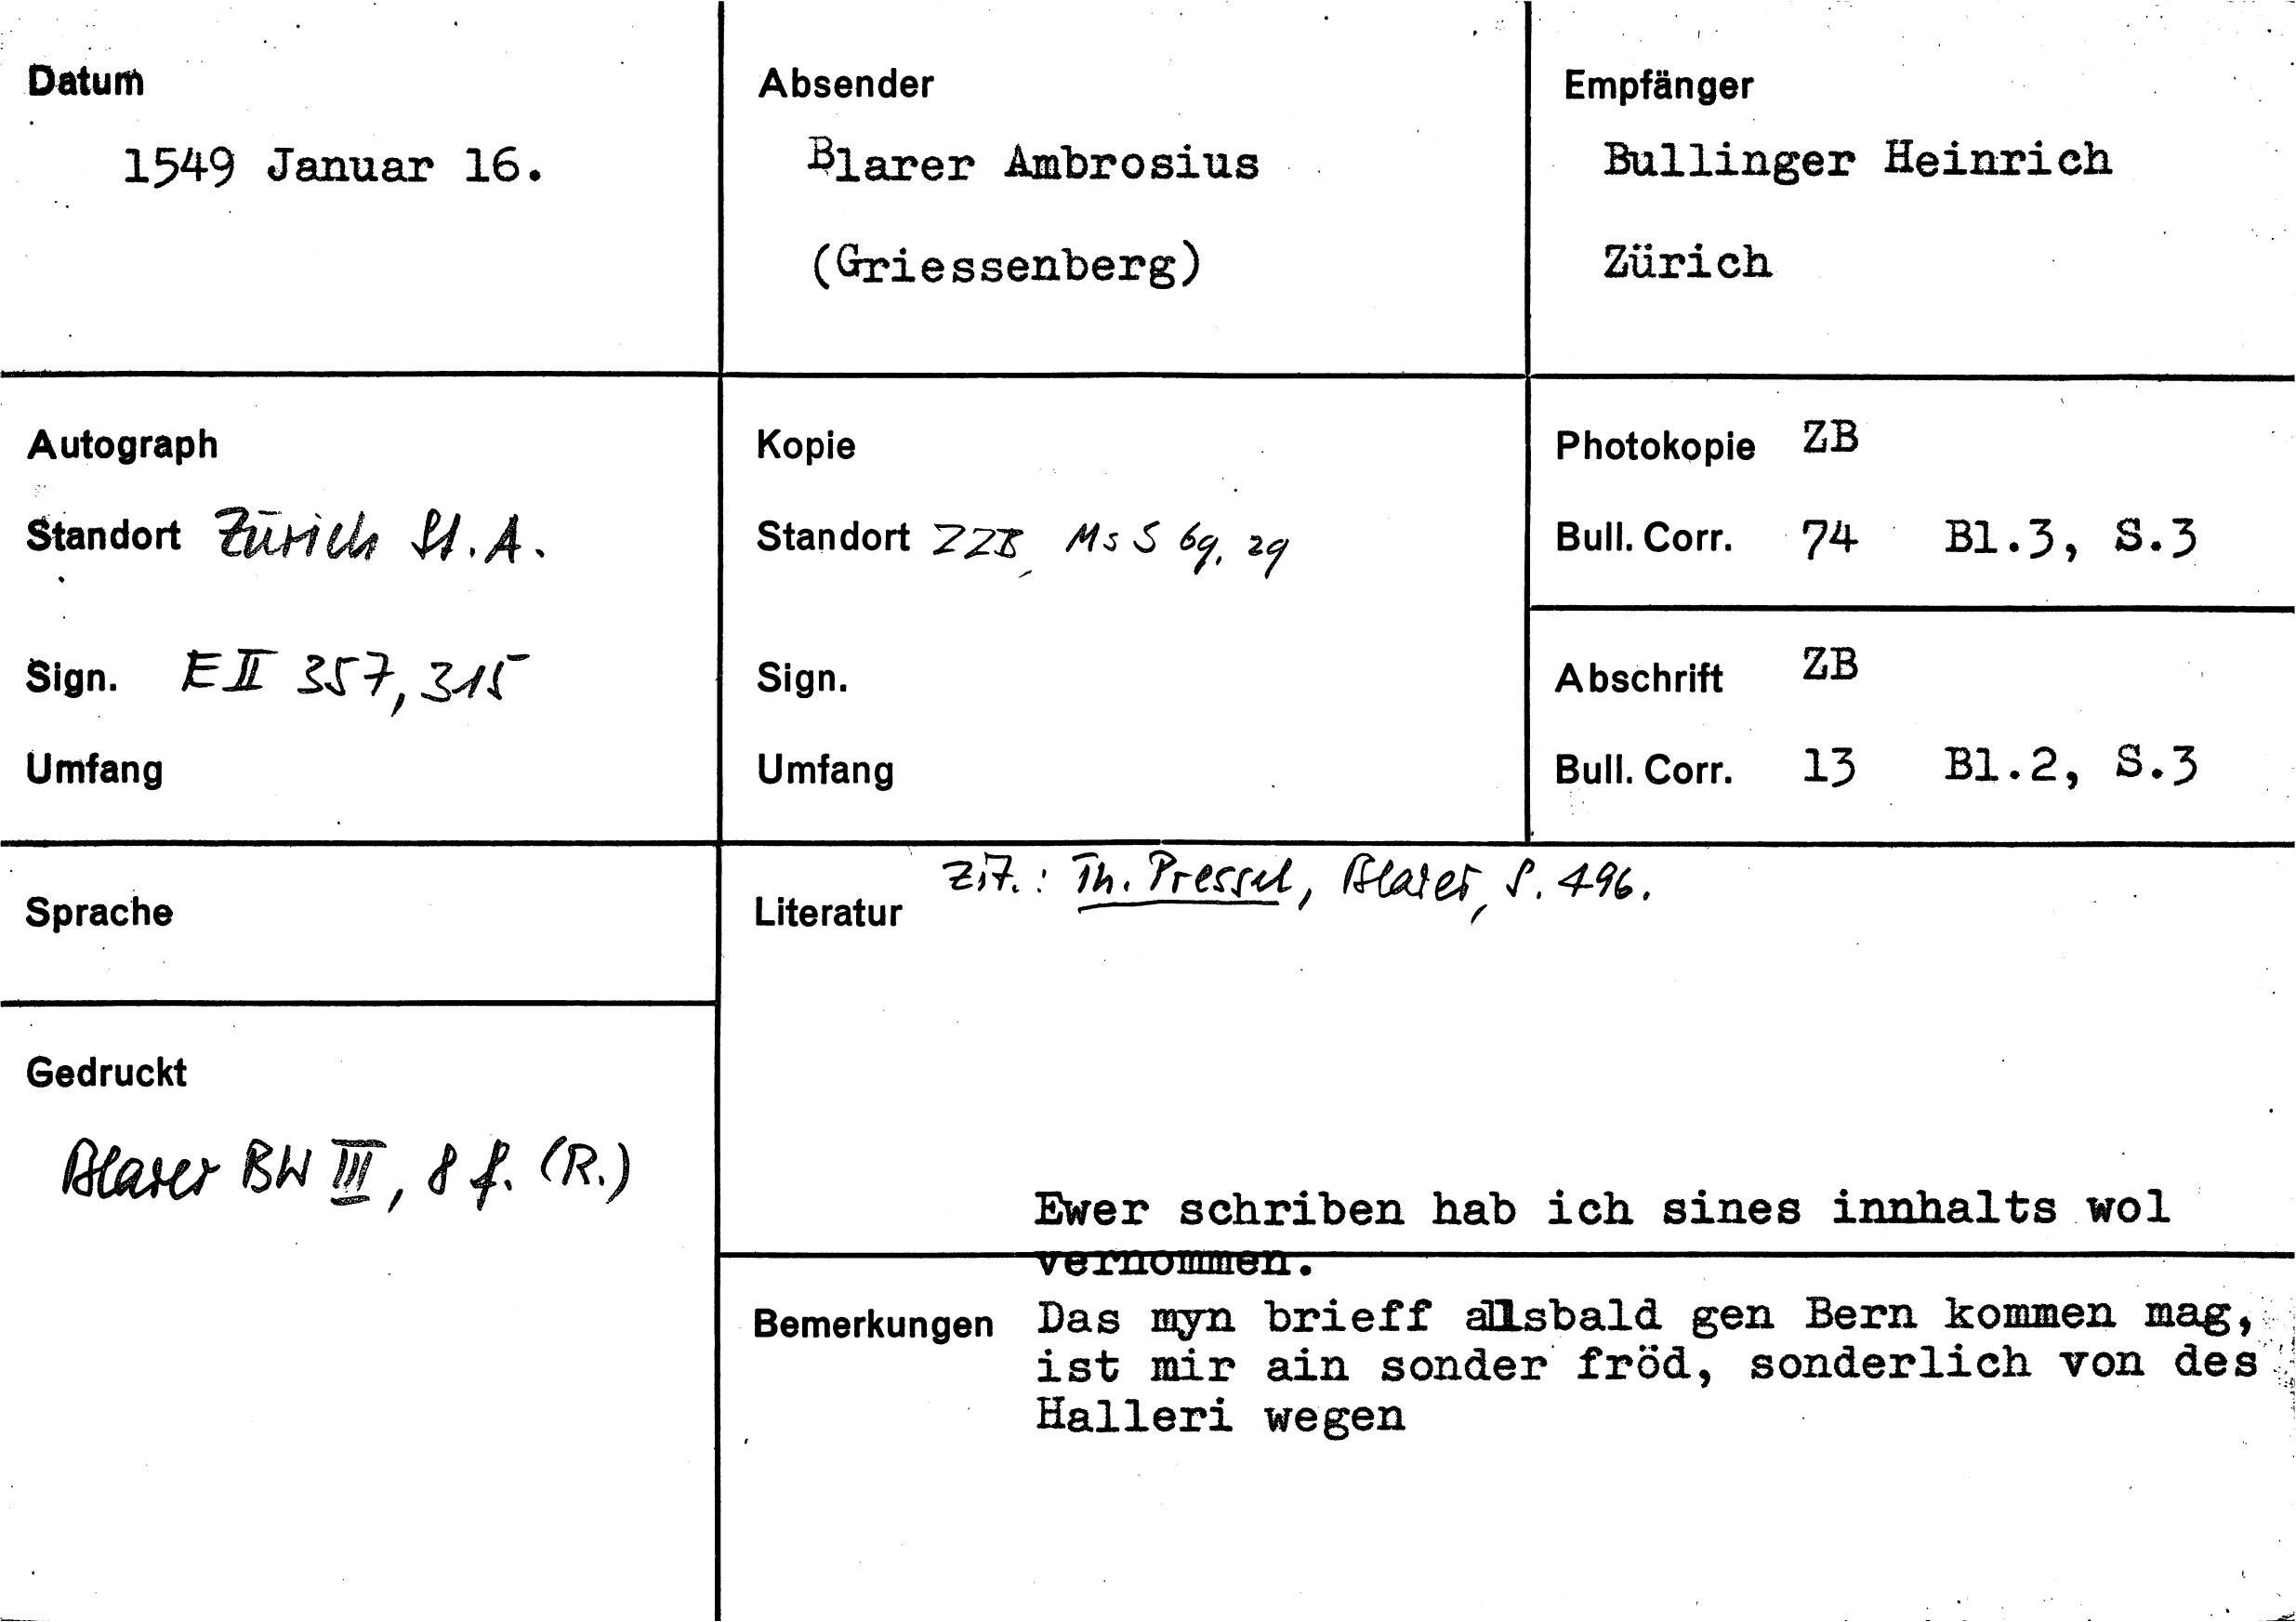 Datum
1549 Januar 16.
Absender
Blarer Ambrosius
(Griessenberg)
Empfänger
Bullinger Heinrich
Zürich
Autograph
Standort Zürich St. A.
Sign. E II 357, 315
Umfang
Kopie
Standort ZZB, Ms S 69, 29
Sign.
Umfang
Photokopie ZB
Bull. Corr. 74 Bl.3, S.3
Abschrift ZB
Bull. Corr. 13 Bl.2, S.3
Sprache
Gedruckt
Blarer BW III, 8 f. (R.)
Zit.: Th. Pressel, Blarer, S. 496.
Literatur
Ewer schriben hab ich sines innhalts wol
vernommen.
Bemerkungen Das myn brieff allsbald gen Bern kommen mag,
ist mir ain sonder fröd, sonderlich von des
Halleri wegen